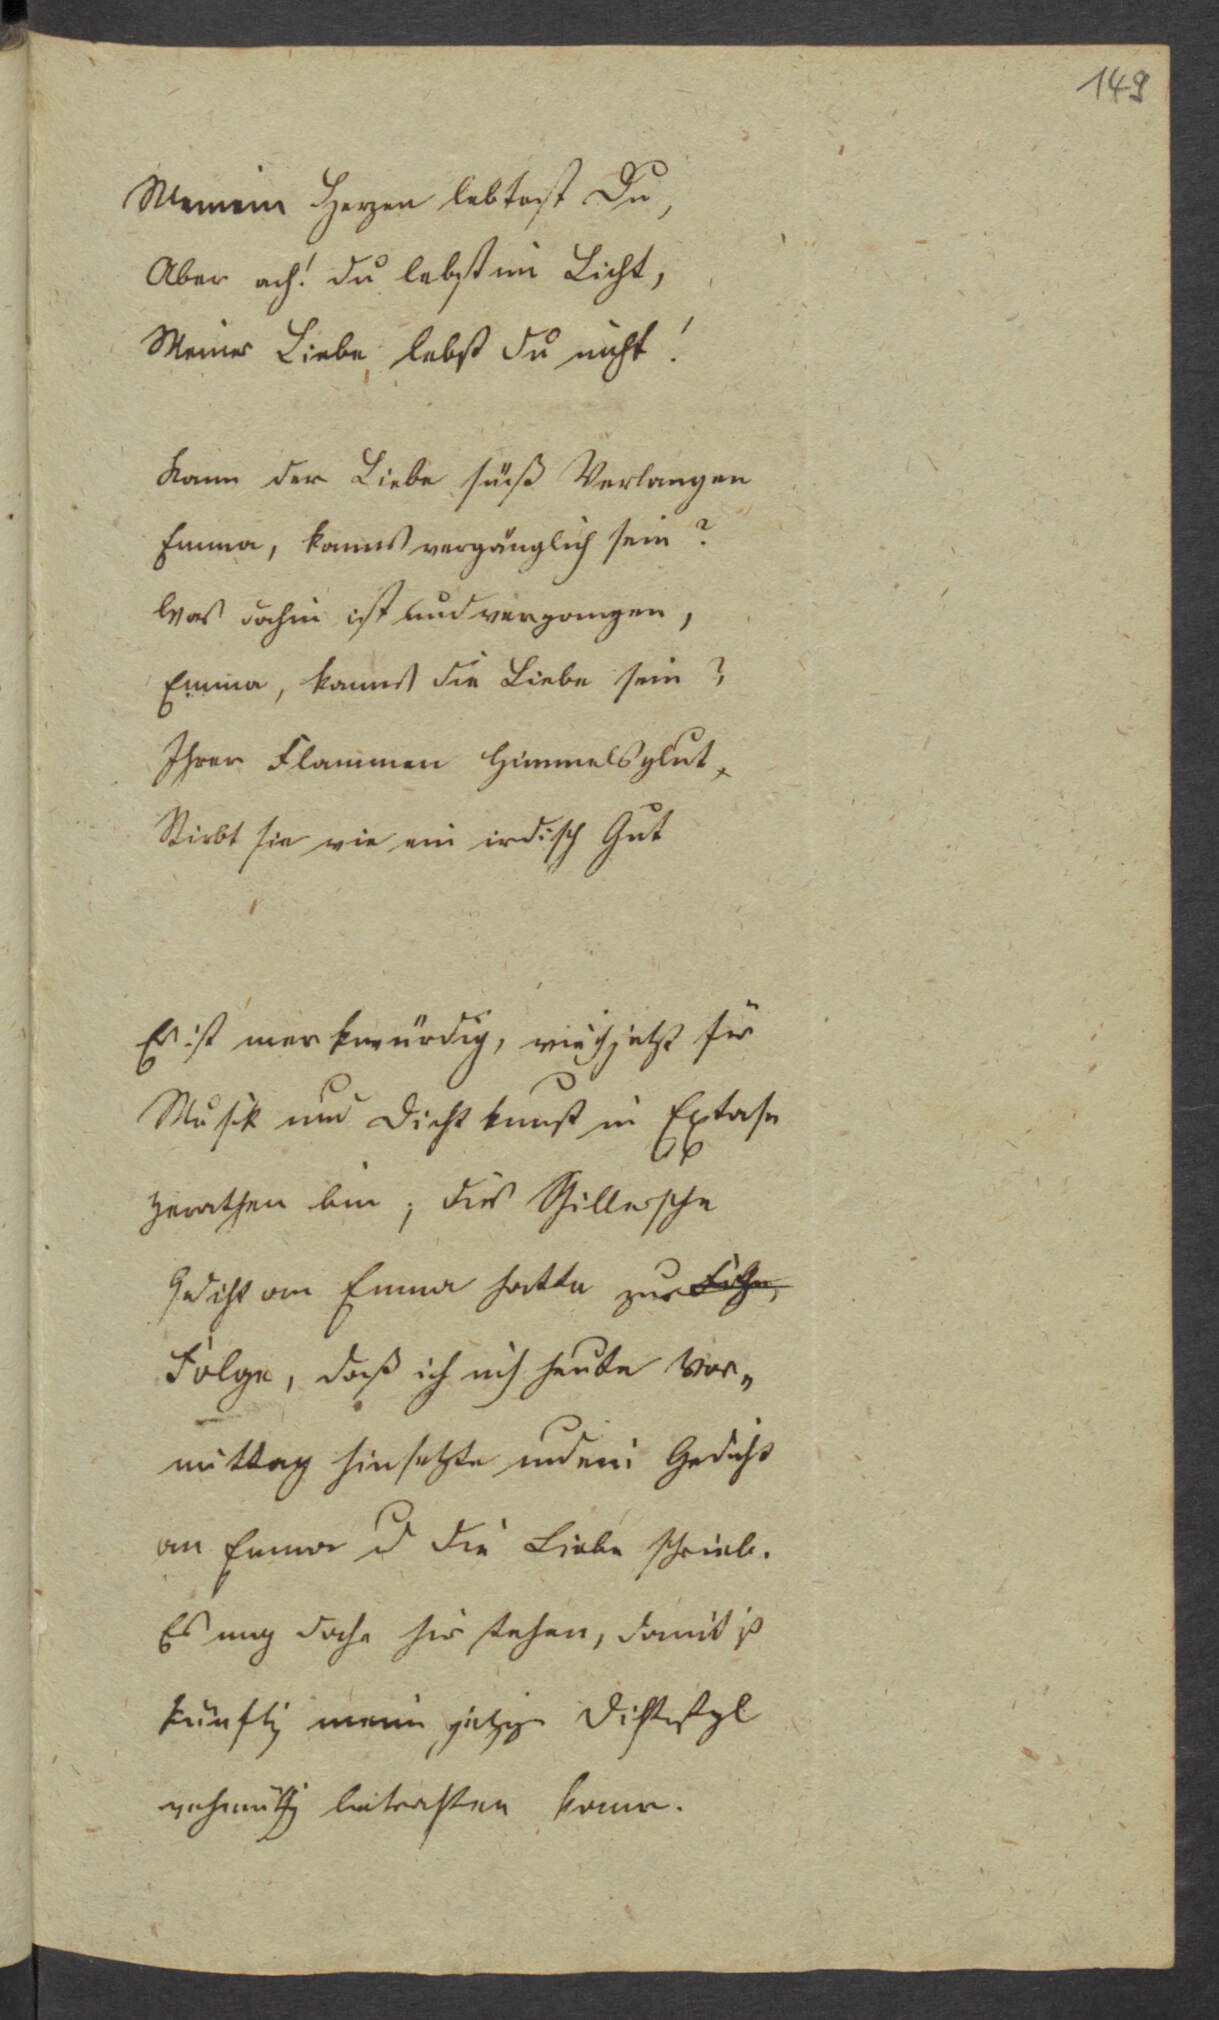 149
Meinem Herzen lebtest Du,
Aber ach! du lebst im Licht,
Meiner Liebe lebst du nicht!
Kann der Liebe süß Verlangen
Emma, kanns vergänglich sein?
Was dahin ist und vergangen,
Emma, kanns die Liebe sein?
Ihrer Flammen Himmelsglut,
Stirbt sie wie ein irdisch Gut
Es ist merkwürdig, wie ich jetzt für
Musik und Dichtkunst in Extase
gerathen bin; dies Schillersche
Gedicht an Emma hatte zur
Folge, daß ich mich heute Vor„
mittag hinsetzte und ein Gedicht
an Emma u die Liebe schrieb.
Es mag doch hier stehen, damit ich
künftig meine jetzigen Dichterstyl
wehmüthig betrachten kann.